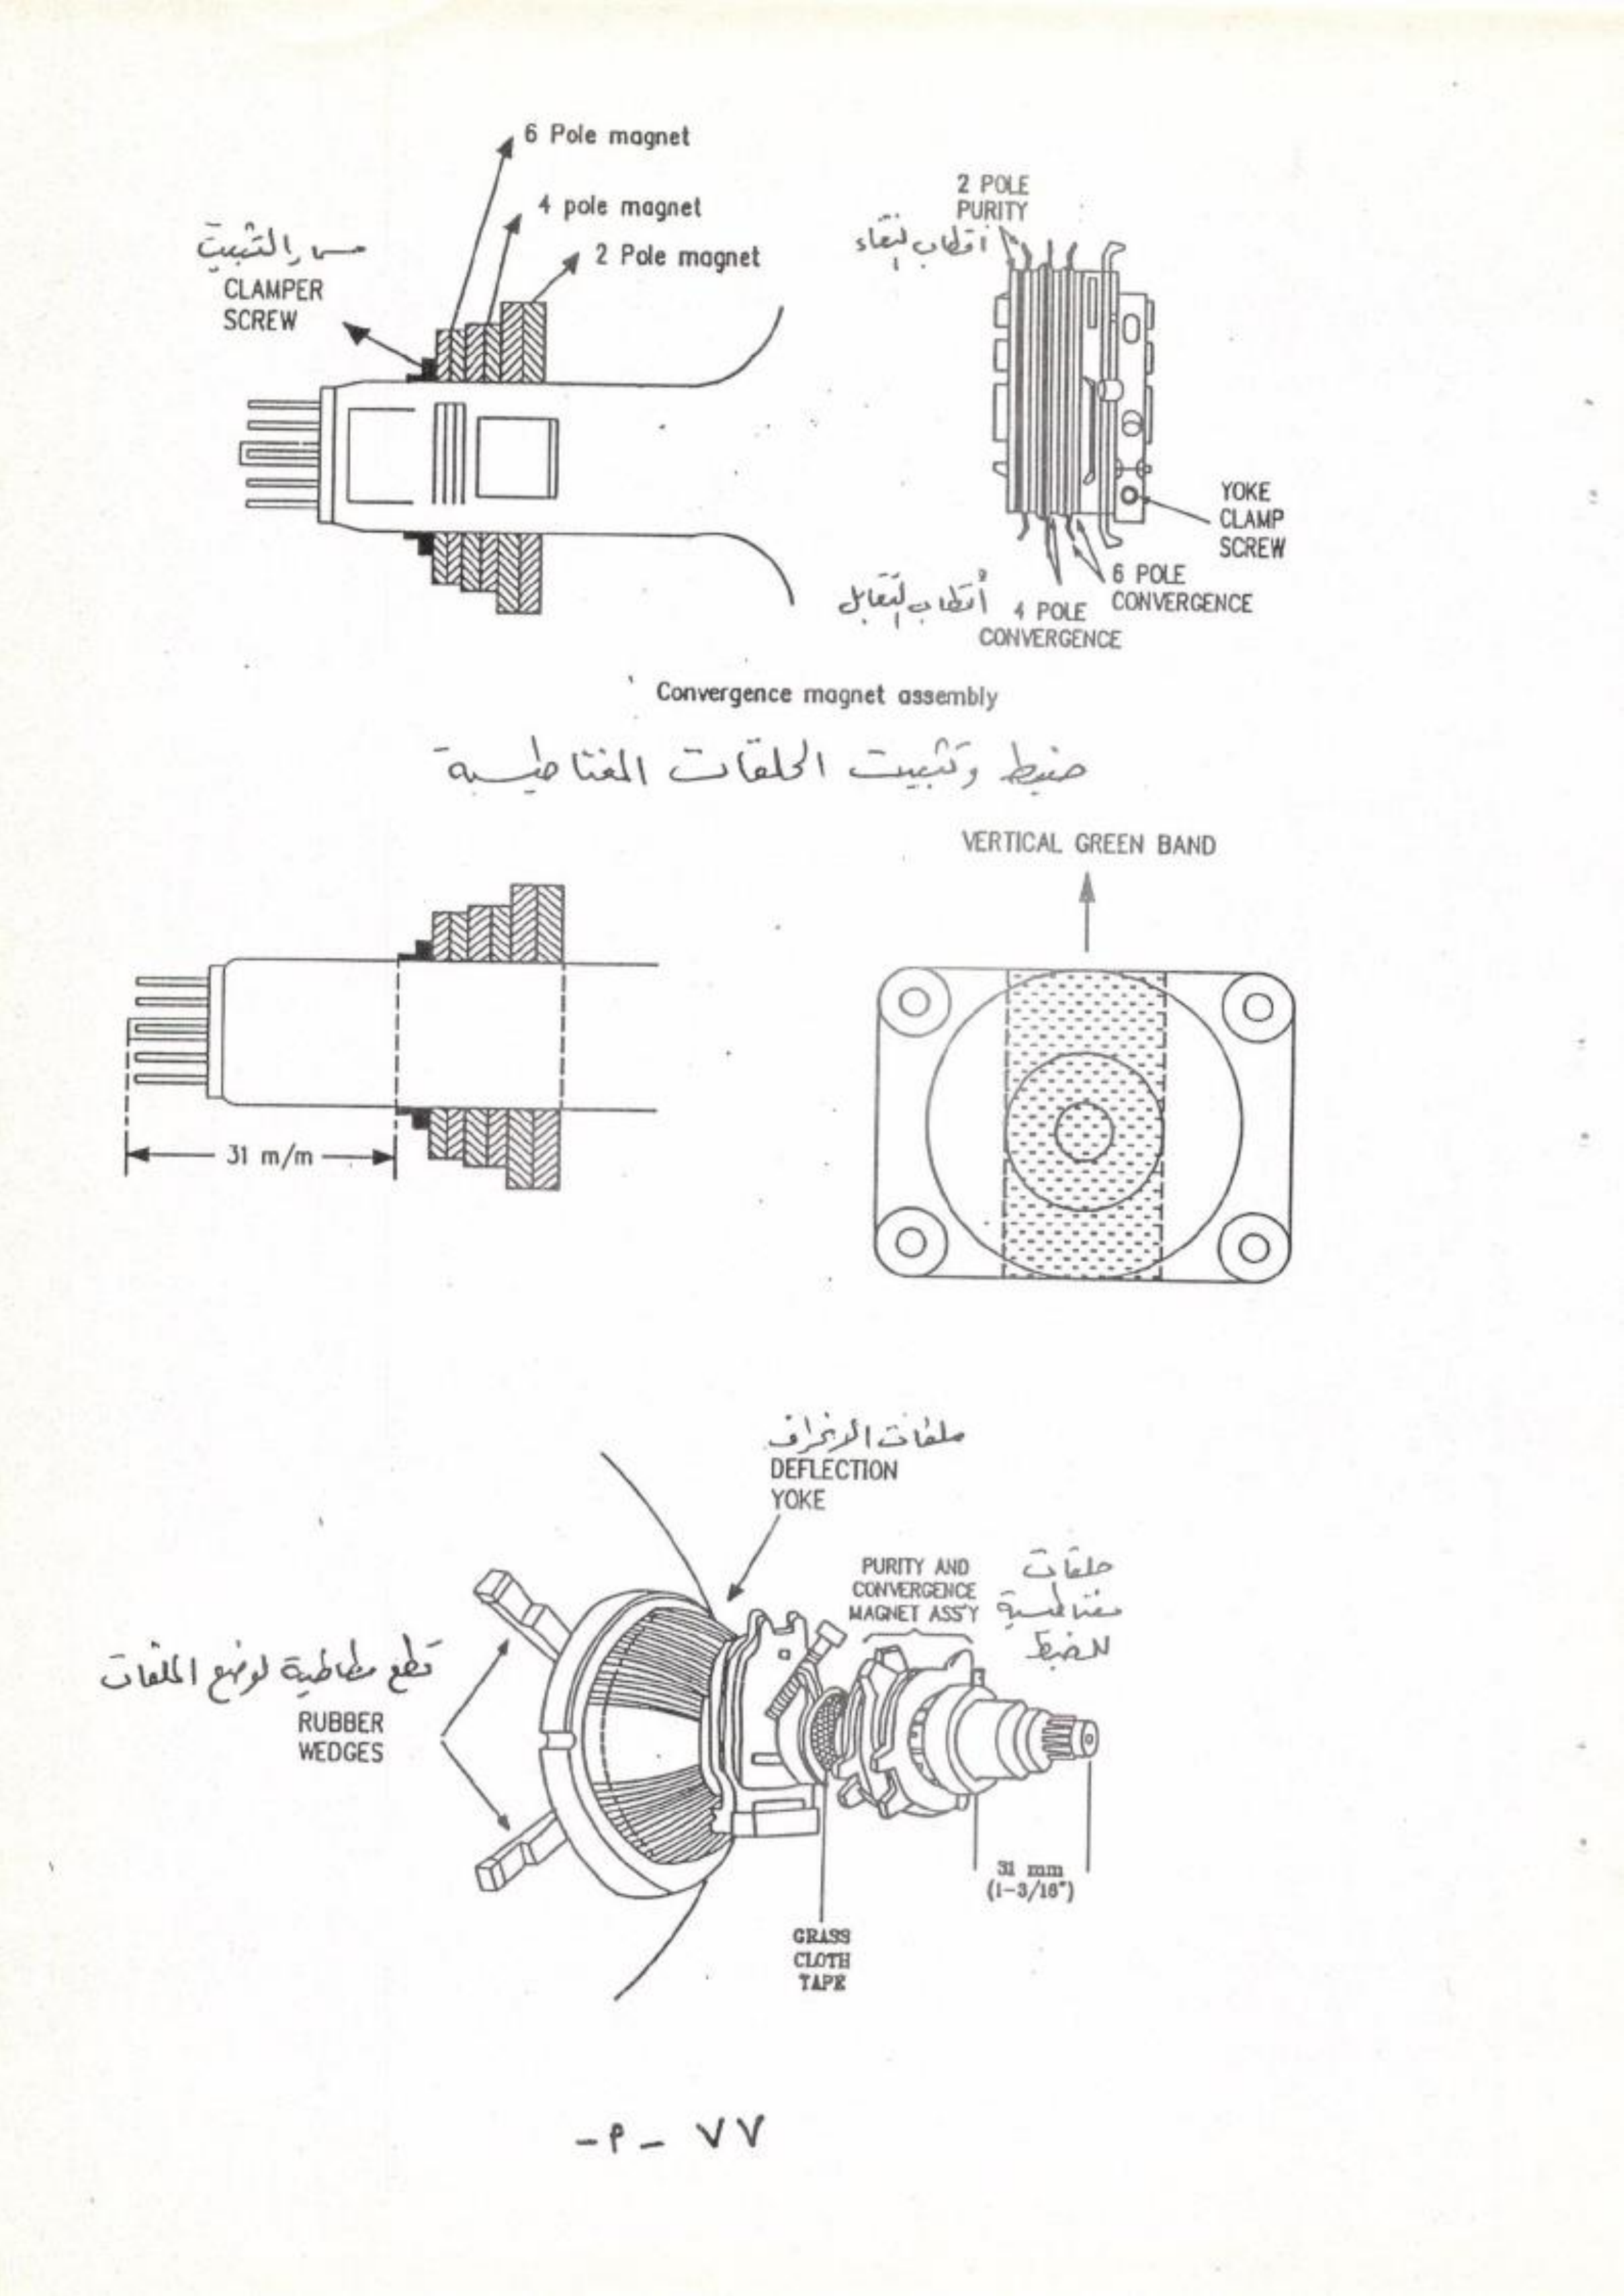 6 Pole magnet
4 pole magnet
2 Pole magnet
مسمار التثبيت
CLAMPER
SCREW
2 POLE
PURITY
اقطاب النقاء
YOKE
CLAMP
SCREW
6 POLE
CONVERGENCE
أقطاب التقابل
4 POLE
CONVERGENCE
Convergence magnet assembly
ضبط وتثبيت الحلقات المغناطيسية
VERTICAL GREEN BAND
31 m/m
ملفات الانحراف
DEFLECTION
YOKE
PURITY AND
CONVERGENCE
MAGNET ASS'Y
حلقات
مغناطيسية
للضبط
قطع مطاطية لوضع الملفات
RUBBER
WEDGES
31 mm
(1-3/16")
GRASS
CLOTH
TAPE
٧٧ - م -